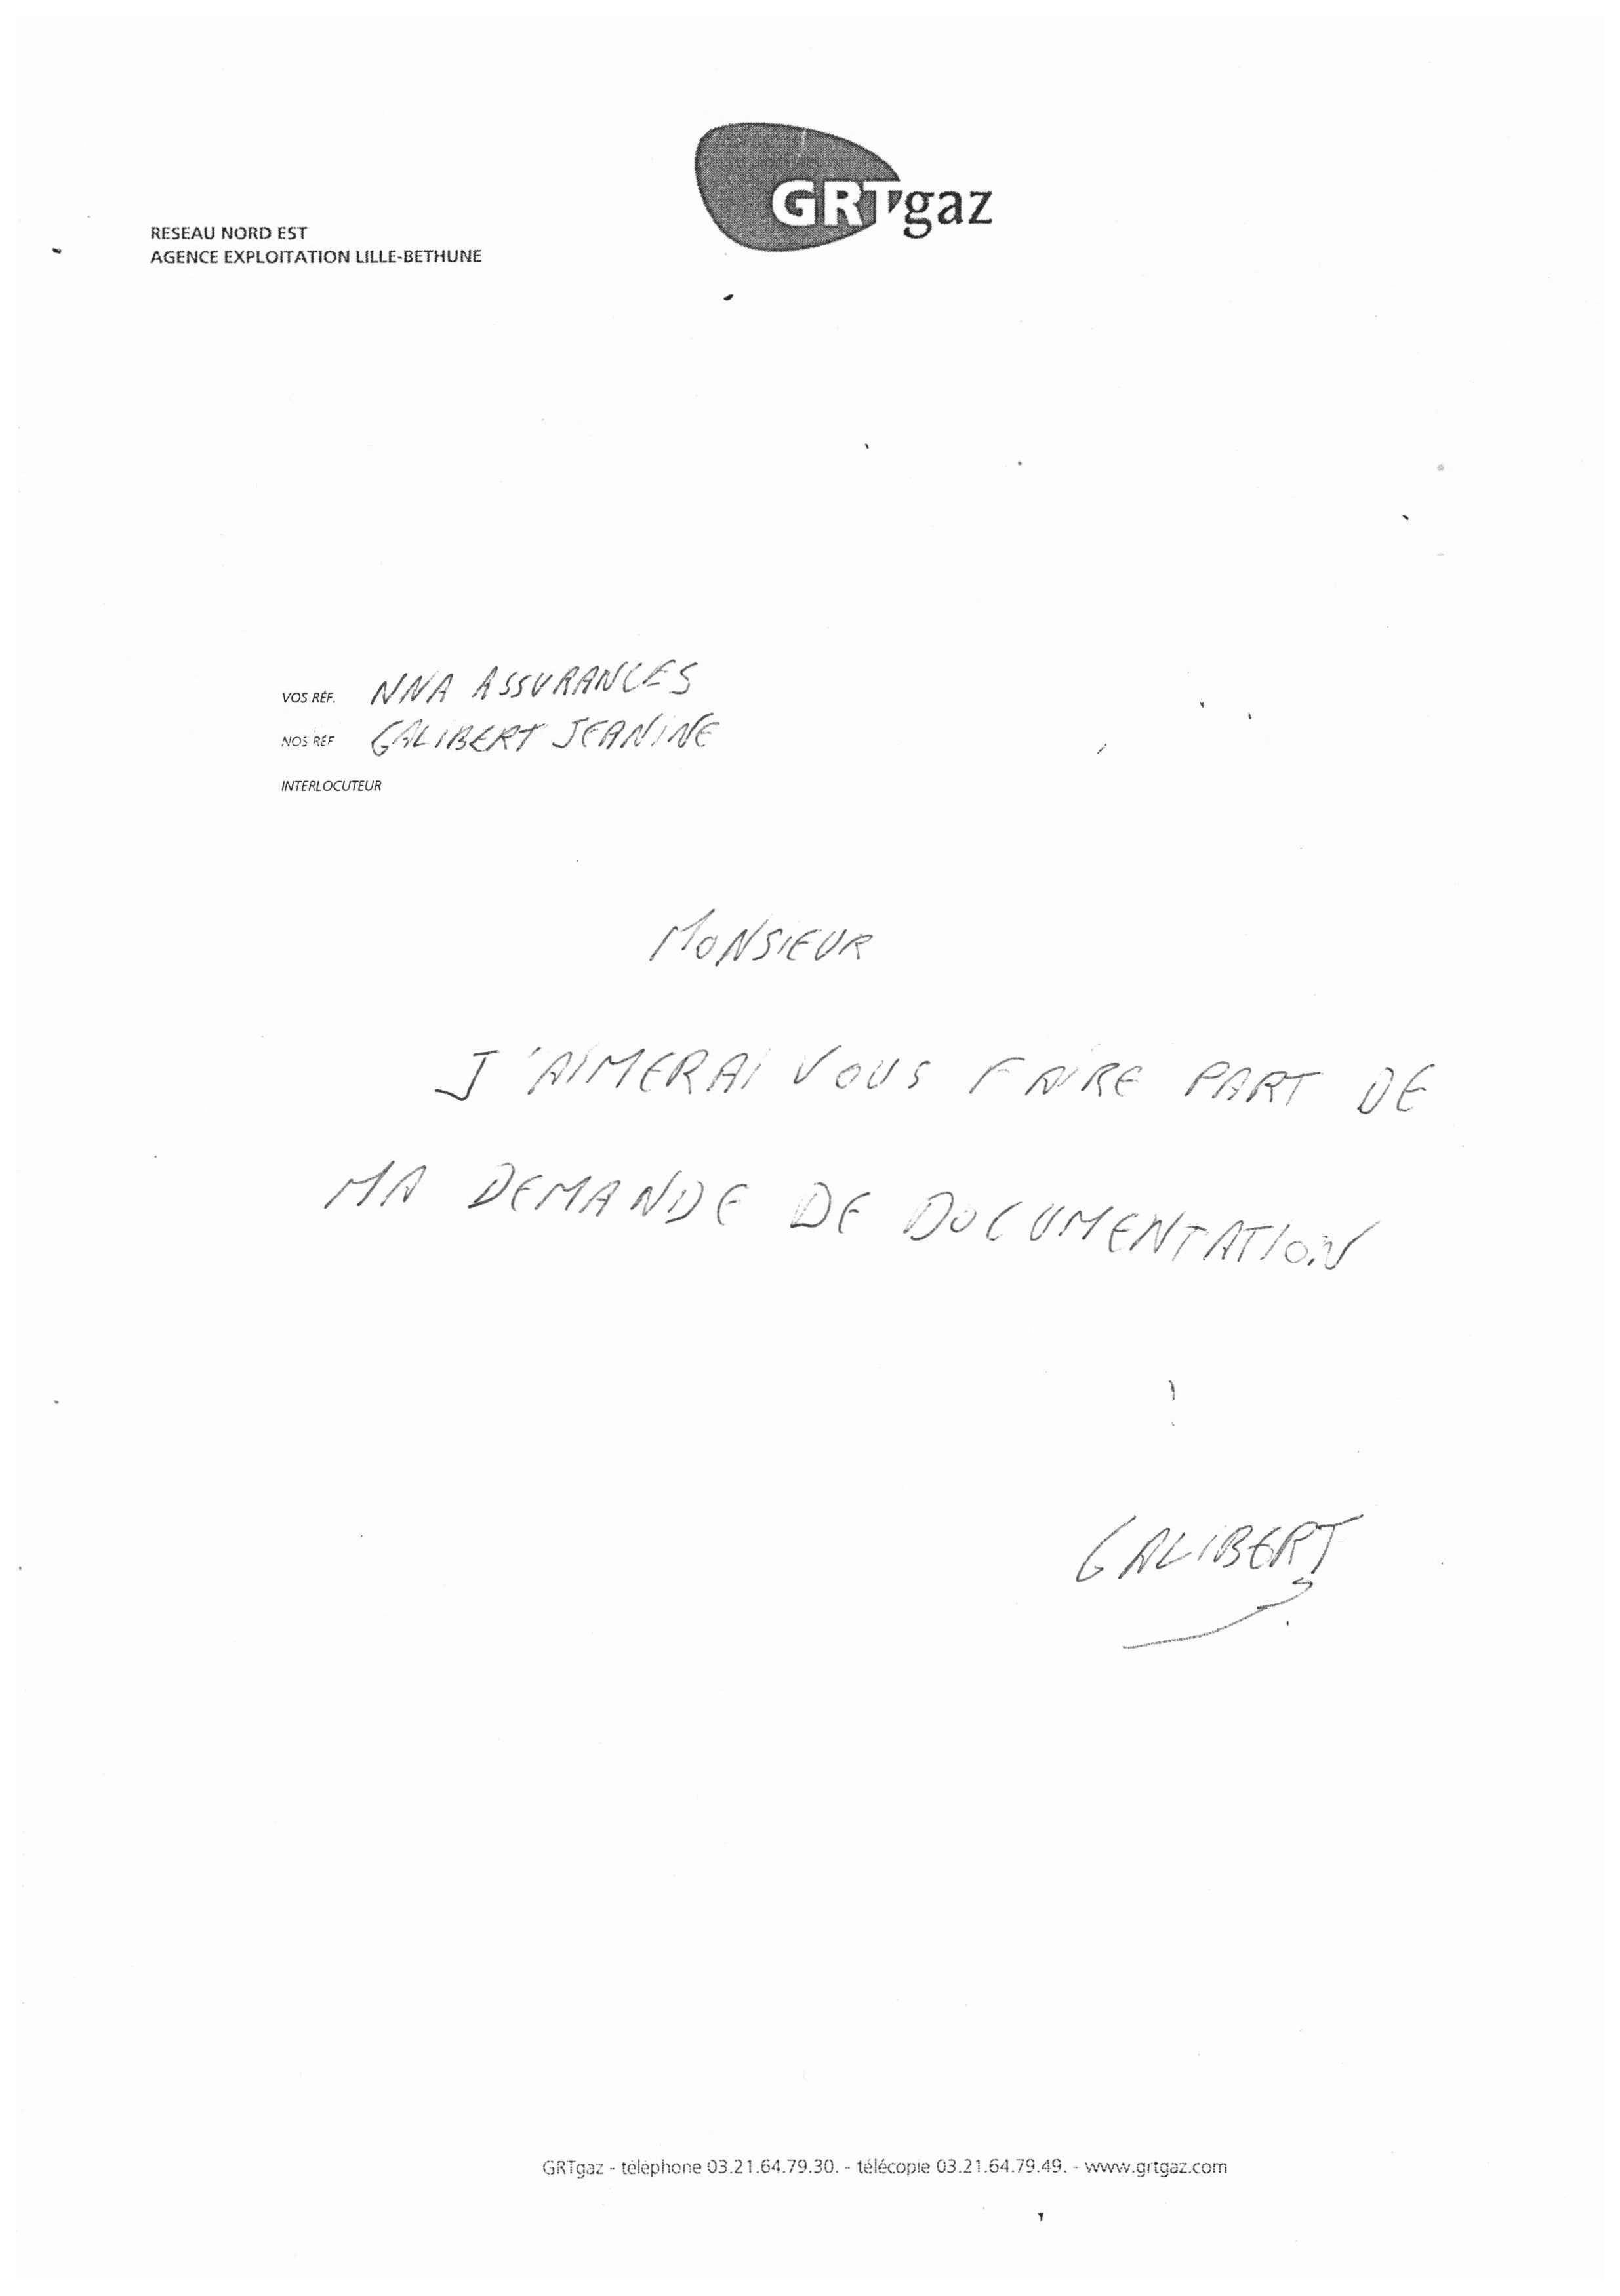 GRTgaz
RESEAU NORD EST
AGENCE EXPLOITATION LILLE-BETHUNE
VOS RÉF. NNA ASSURANCES
NOS RÉF GALIBERT JEANINE
INTERLOCUTEUR
MONSIEUR
J'AIMERAI VOUS FAIRE PART DE
MA DEMANDE DE DOCUMENTATION
GALIBERT
GRTgaz - téléphone 03.21.64.79.30. - télécopie 03.21.64.79.49. - www.grtgaz.com